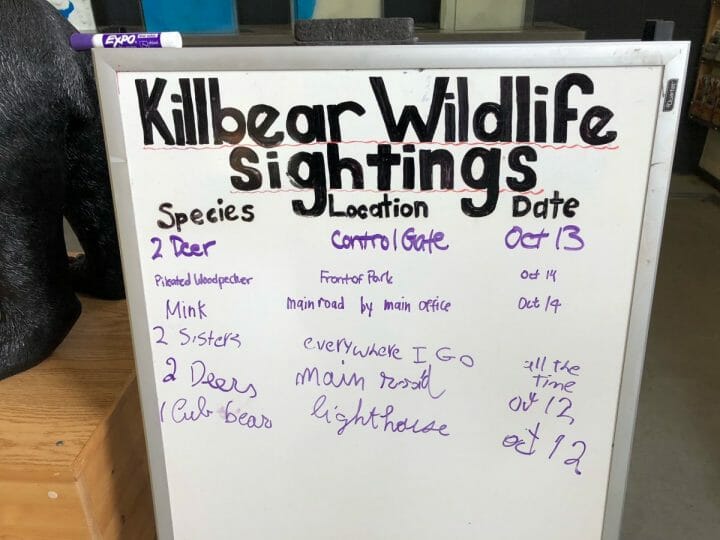 EXPO
Killbear Wildlife
Sightings
Species Location Date
2 Deer Control Gate Oct 13
Pileated Woodpecker Front of Park Oct 14
Mink main road by main office Oct 14
2 Sisters everywhere I Go all the time
2 Deers main road Oct 12
1 Cub bear lighthouse oct 12